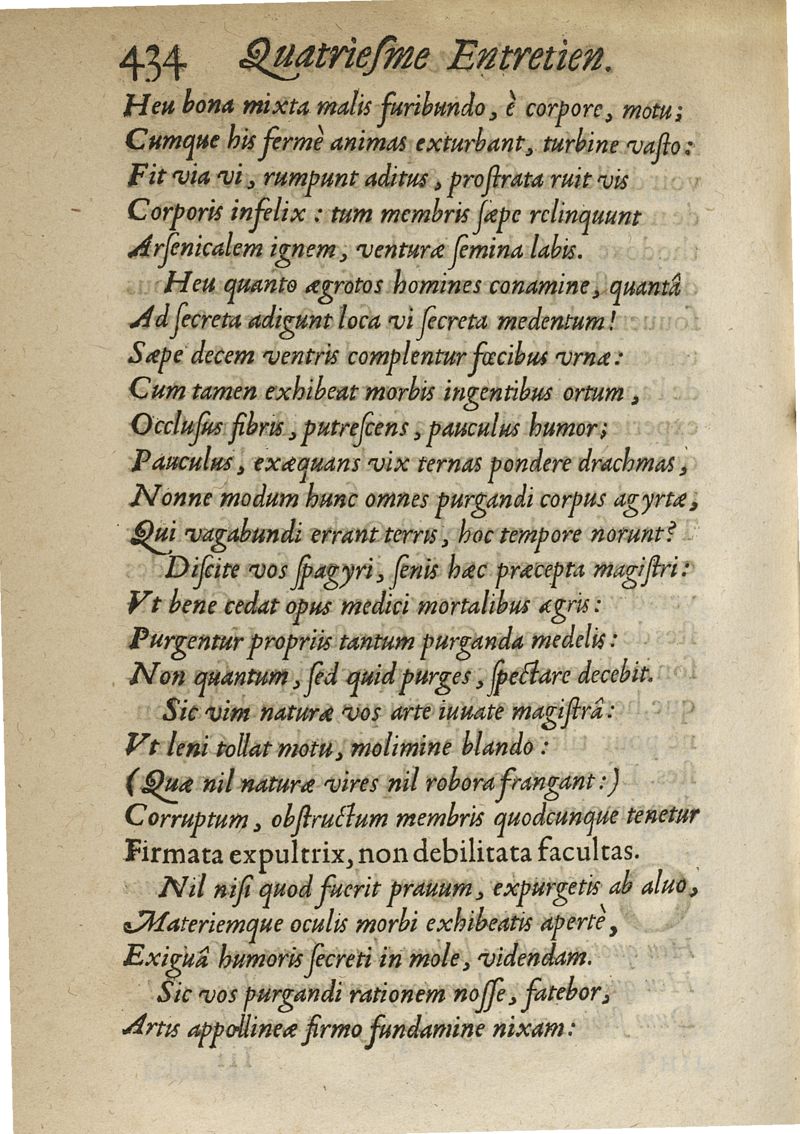 434 Quatrieſme Entretien.
Heu bona mixta malis furibundo, è corpore, motu;
Cumque his fermè animas exturbant, turbine vaſto:
Fit via vi, rumpunt aditus, proſtrata ruit vis
Corporis infelix: tum membris ſæpe relinquunt
Arſenicalem ignem, venturæ ſemina labis.
Heu quanto ægrotos homines conamine, quantâ
Ad ſecreta adigunt loca vi ſecreta medentum!
Sæpe decem ventris complentur fœcibus vrnæ:
Cum tamen exhibeat morbis ingentibus ortum,
Occluſus fibris, putreſcens, pauculus humor;
Pauculus, exæquans vix ternas pondere drachmas,
Nonne modum hunc omnes purgandi corpus agyrtæ,
Qui vagabundi errant terris, hoc tempore norunt?
Diſcite vos ſpagyri, ſenis hæc præcepta magiſtri:
Vt bene cedat opus medici mortalibus ægris:
Purgentur propriis tantum purganda medelis:
Non quantum, ſed quid purges, ſpectare decebit.
Sic vim naturæ vos arte iuuate magiſtrâ:
Vt leni tollat motu, molimine blando:
(Quæ nil naturæ vires nil robora frangant:)
Corruptum, obſtructum membris quodcunque tenetur
Firmata expultrix, non debilitata facultas.
Nil niſi quod fuerit prauum, expurgetis ab aluo,
Materiemque oculis morbi exhibeatis apertè,
Exiguâ humoris ſecreti in mole, videndam.
Sic vos purgandi rationem noſſe, fatebor,
Artis appollineæ firmo fundamine nixam: